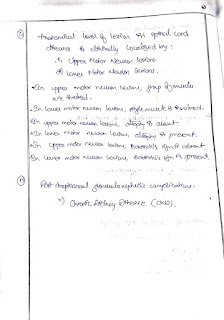 Anatomical level of lesion in spinal cord
diseases is clinically localised by:
1. Upper Motor Neuron lesions.
2) Lower Motor Neuron lesions.
*In upper motor neuron lesions, group of muscles
are involved.
*In lower motor neuron lesions, single muscle is involved.
*In upper motor neuron lesions, atrophy is absent.
*In lower motor neuron lesions, atrophy is present.
*In upper motor neuron lesions, Babinski's sign is absent.
*In lower motor neuron lesions, Babinski's sign is present.
Post streptococcal glomerulonephritis complications:
*) Chronic Kidney Disease (CKD).